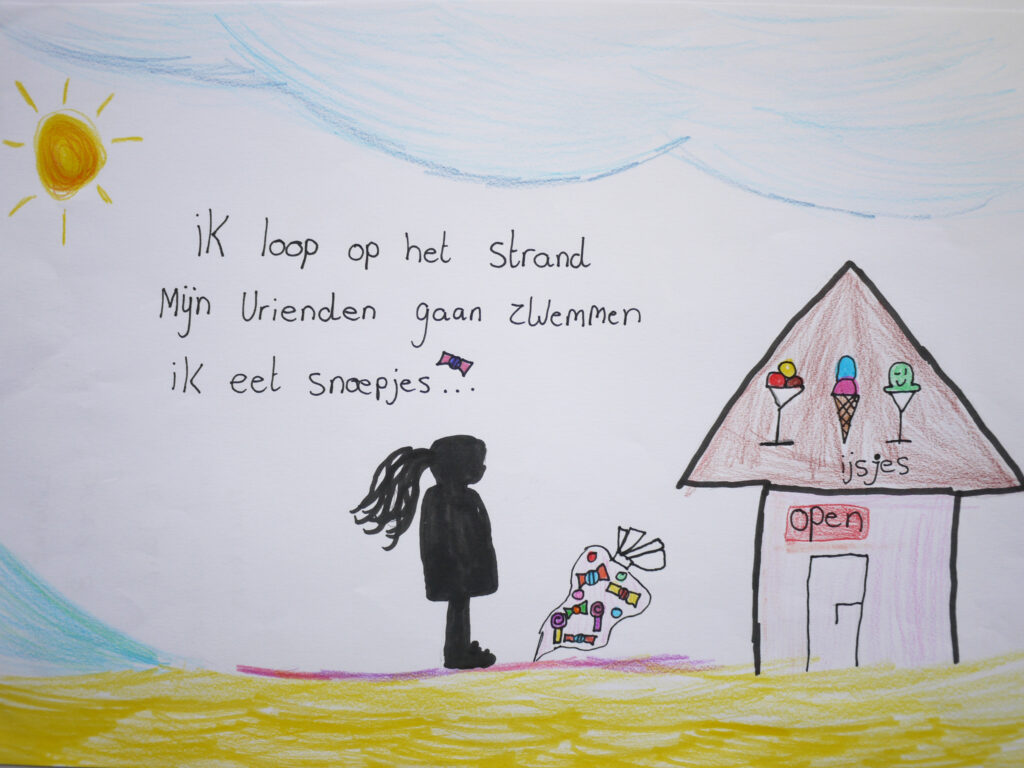 ik loop op het strand
Mijn Vrienden gaan zwemmen
ik eet snoepjes...
ijsjes
open